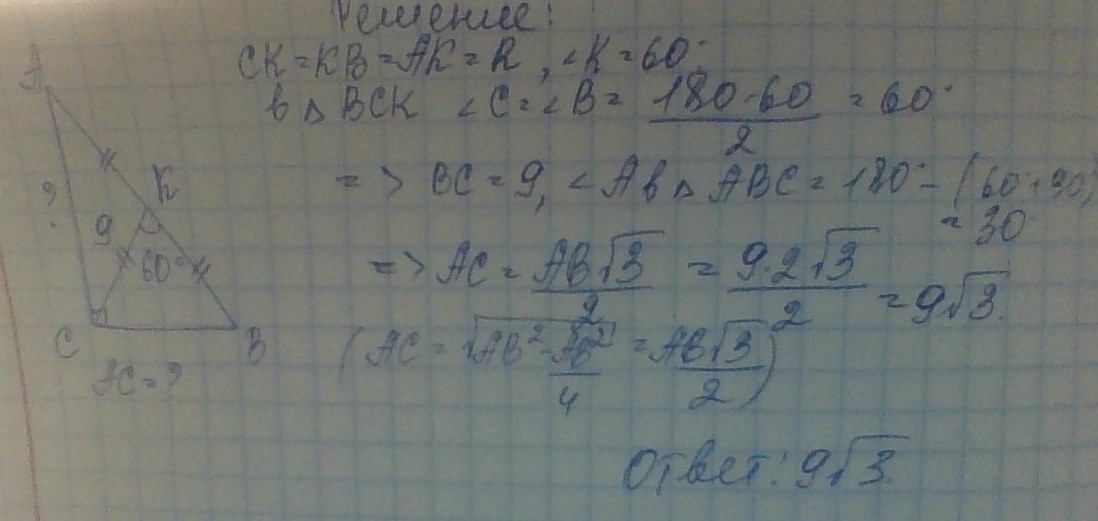 Решение:
CK = KB = AK = R, <K = 60°
в △ BCK <C = <B = (180-60)/2 = 60°
=> BC = 9, <A в △ ABC = 180° - (60+90) = 30
=> AC = AB√3/2 = 9·2√3/2 = 9√3.
(AC = √(AB² - AB²/4) = AB√3/2)
Ответ: 9√3.
A
K
?
9
60°
C
B
AC = ?